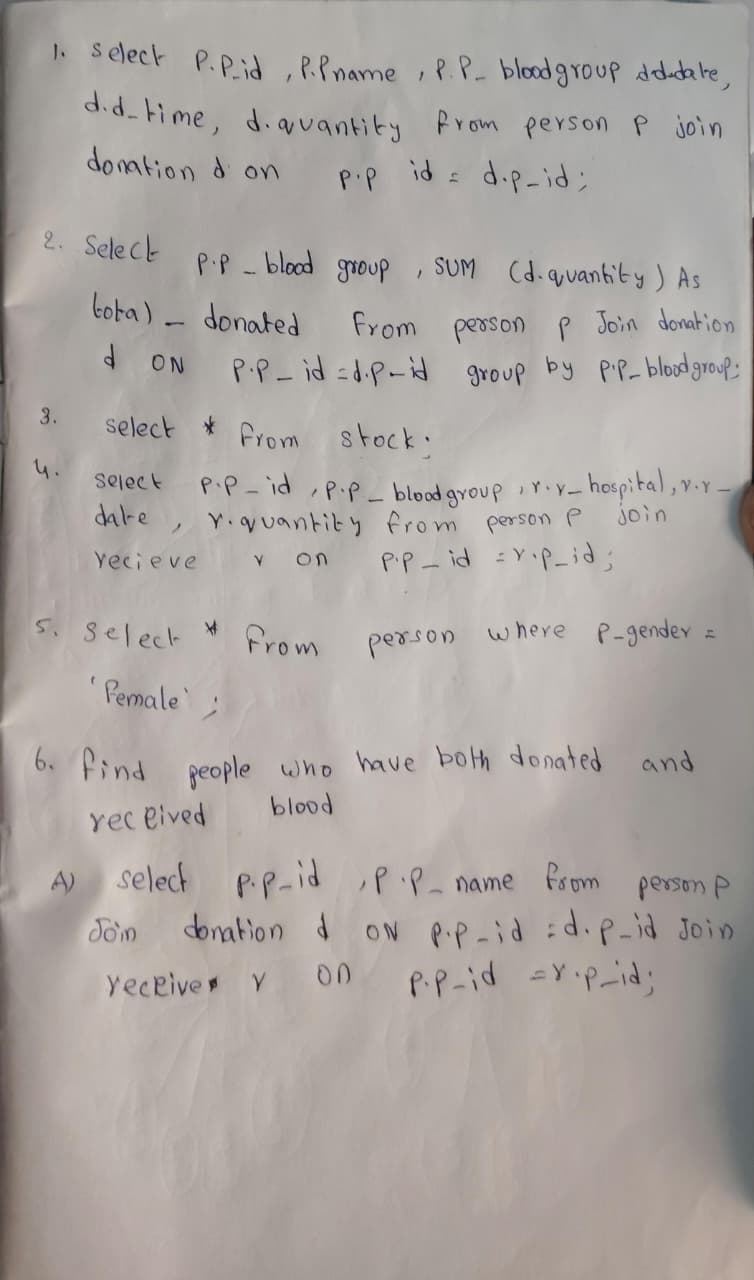 1. select P.P_id , P.Pname , P.P_ bloodgroup d.d_date,
d.d_time, d.quantity from person P join
donation d on p.p id = d.p_id;
2. Select p.p _ blood group , SUM (d.quantity) As
total _ donated from person p Join donation
d ON p.p _ id = d.p_id group by p.p_ bloodgroup;
3. select * from stock;
4. select p.p _ id , p.p _ bloodgroup , r.r_ hospital, r.r_
date , r.quantity from person p join
recieve r on p.p _ id = r.p_id;
5. Select * from person where p_gender =
'Female' ;
6. find people who have both donated and
received blood
A) select p.p_id , p.p_ name from person p
Join donation d ON p.p_id = d.p_id Join
receive r on p.p_id = r.p_id;